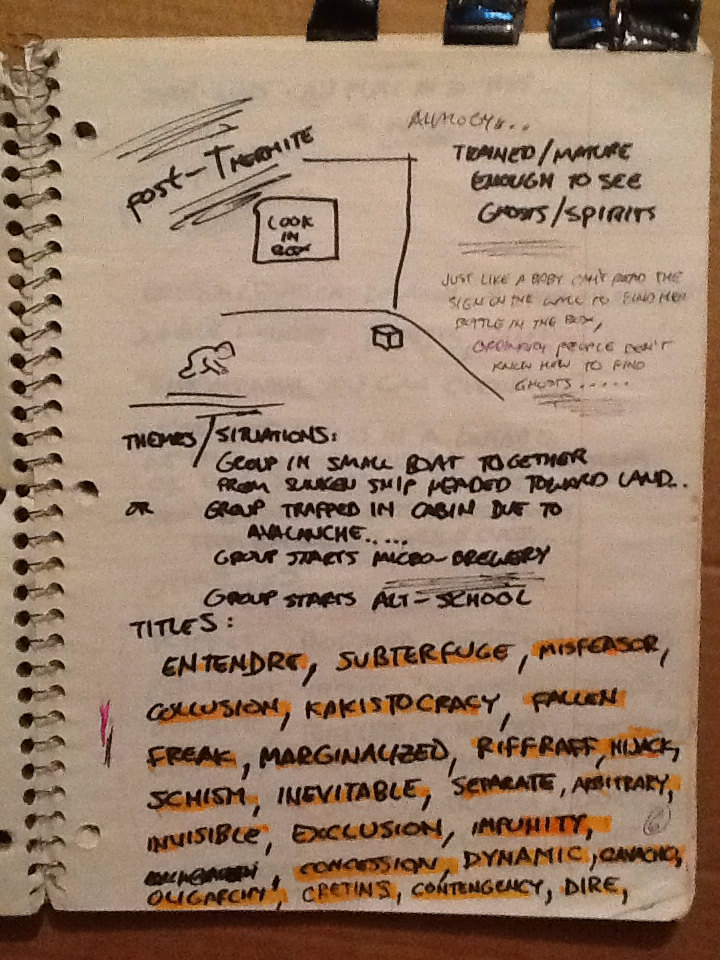 POST-THERMITE
LOOK
IN
BOX
ANALOGY...
TRAINED/MATURE
ENOUGH TO SEE
GHOSTS/SPIRITS
JUST LIKE A BABY CAN'T READ THE
SIGN ON THE WALL TO FIND HER
BOTTLE IN THE BOX,
ORDINARY PEOPLE DON'T
KNOW HOW TO FIND
GHOSTS.....
THEMES/SITUATIONS:
GROUP IN SMALL BOAT TOGETHER
FROM SUNKEN SHIP HEADED TOWARD LAND..
OR GROUP TRAPPED IN CABIN DUE TO
AVALANCHE.....
GROUP STARTS MICRO-BREWERY
GROUP STARTS ALT-SCHOOL
TITLES:
ENTENDRE, SUBTERFUGE, MISFEASOR,
COLLUSION, KAKISTOCRACY, FALLEN
FREAK, MARGINALIZED, RIFFRAFF, HIJACK,
SCHISM, INEVITABLE, SEPARATE, ARBITRARY,
INVISIBLE, EXCLUSION, IMPUNITY,
6
CONCESSION, DYNAMIC, GAVACHO,
OLIGARCHY, CRETINS, CONTENGENCY, DIRE,